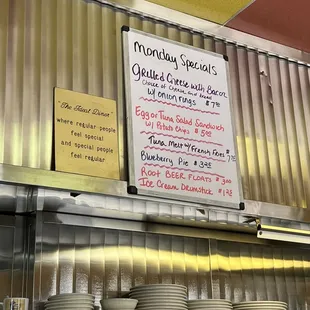 "The Toast Diner"
where regular people
feel special
and special people
feel regular
Monday Specials
Grilled Cheese with Bacon
Choice of Cheese and bread
w/ onion rings $7
Egg or Tuna Salad Sandwich
w/ Potato Chips $5
Tuna Melt w/ French Fries $7
Blueberry Pie $3
Root BEER FLOATS $3
Ice Cream Drumstick $1